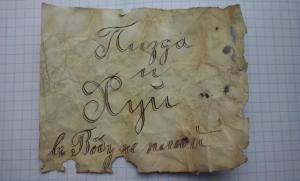 Пизда
и
Хуй
в Воду не